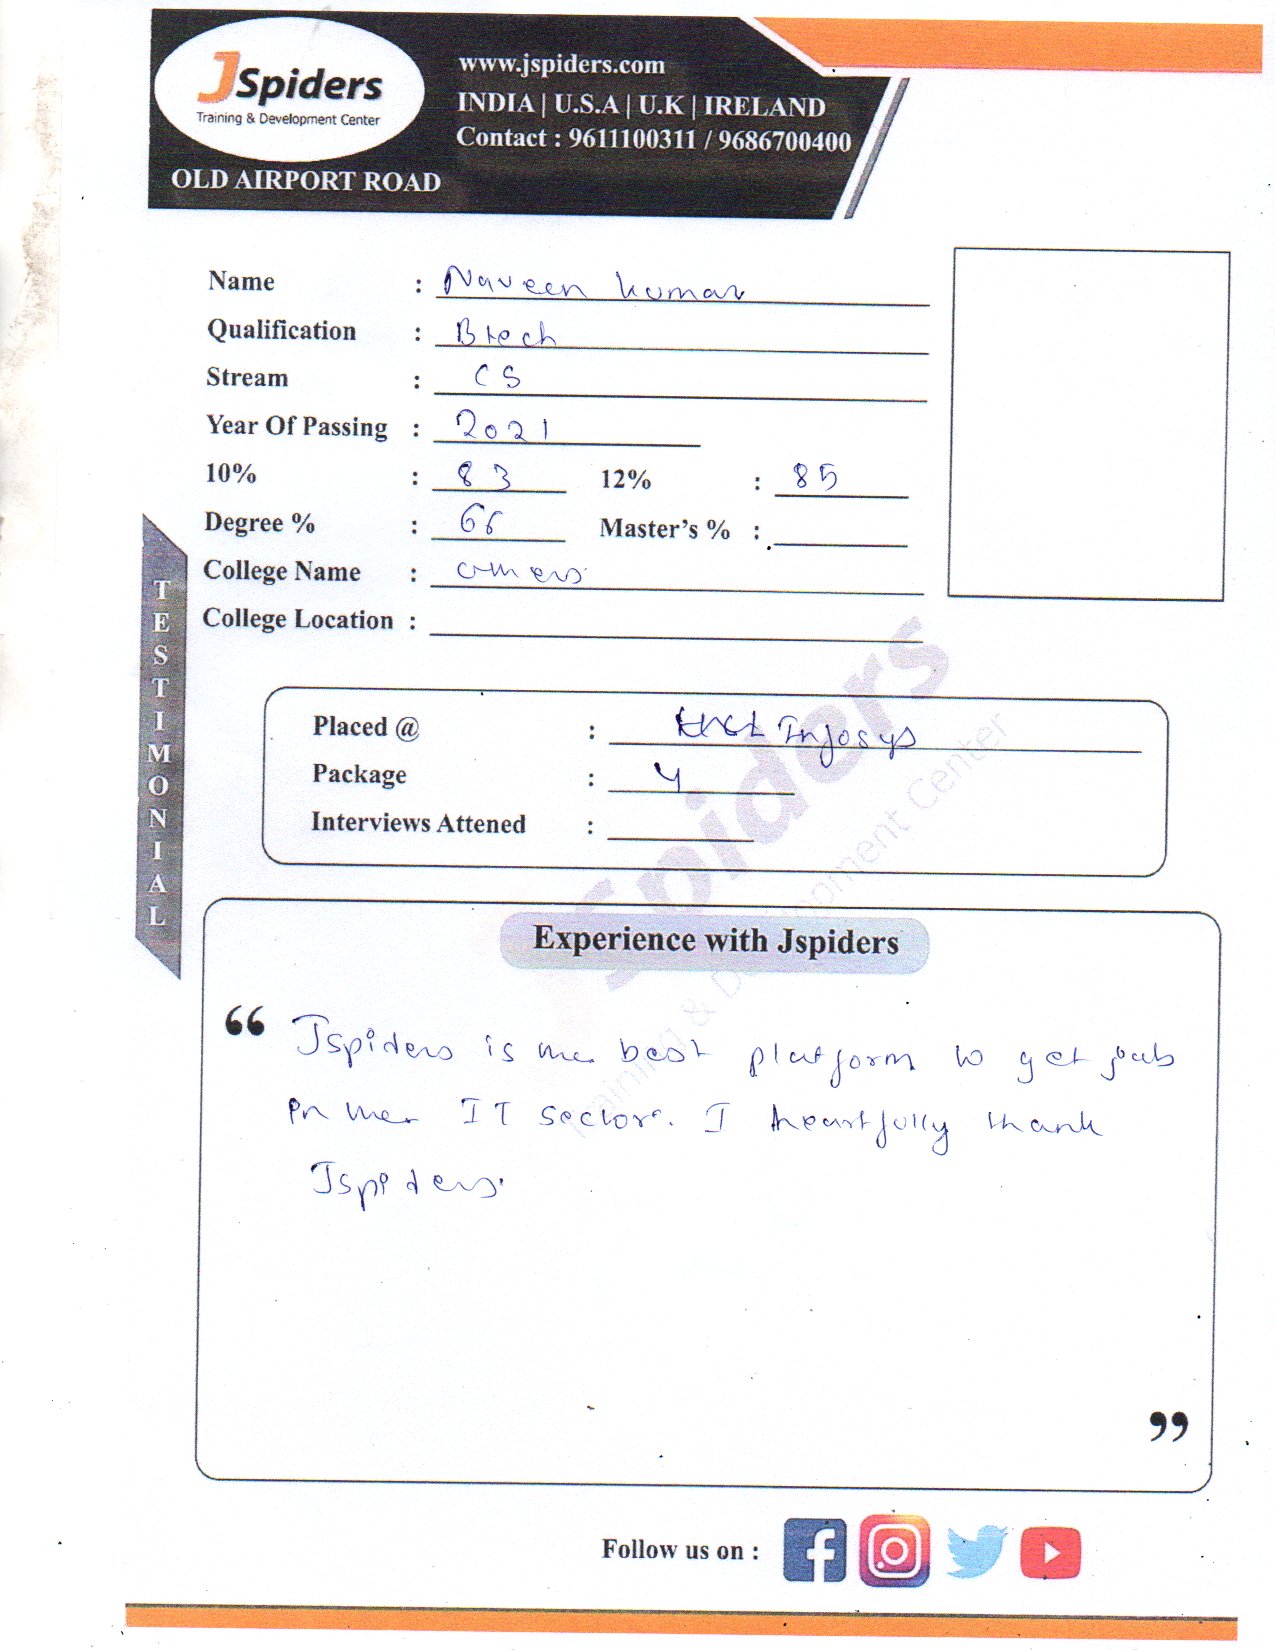 JSpiders
Training & Development Center
OLD AIRPORT ROAD
www.jspiders.com
INDIA | U.S.A | U.K | IRELAND
Contact : 9611100311 / 9686700400
Name : Naveen Kumar
Qualification : Btech
Stream : CS
Year Of Passing : 2021
10% : 83 12% : 85
Degree % : 66 Master's % :
College Name : others
College Location :
TESTIMONIAL
Placed @ : Infosys
Package : 4
Interviews Attened :
Experience with Jspiders
“ Jspiders is the best platform to get job
in the IT sector. I heartfully thank
Jspiders.
”
Spiders
Training & Development Center
Follow us on :